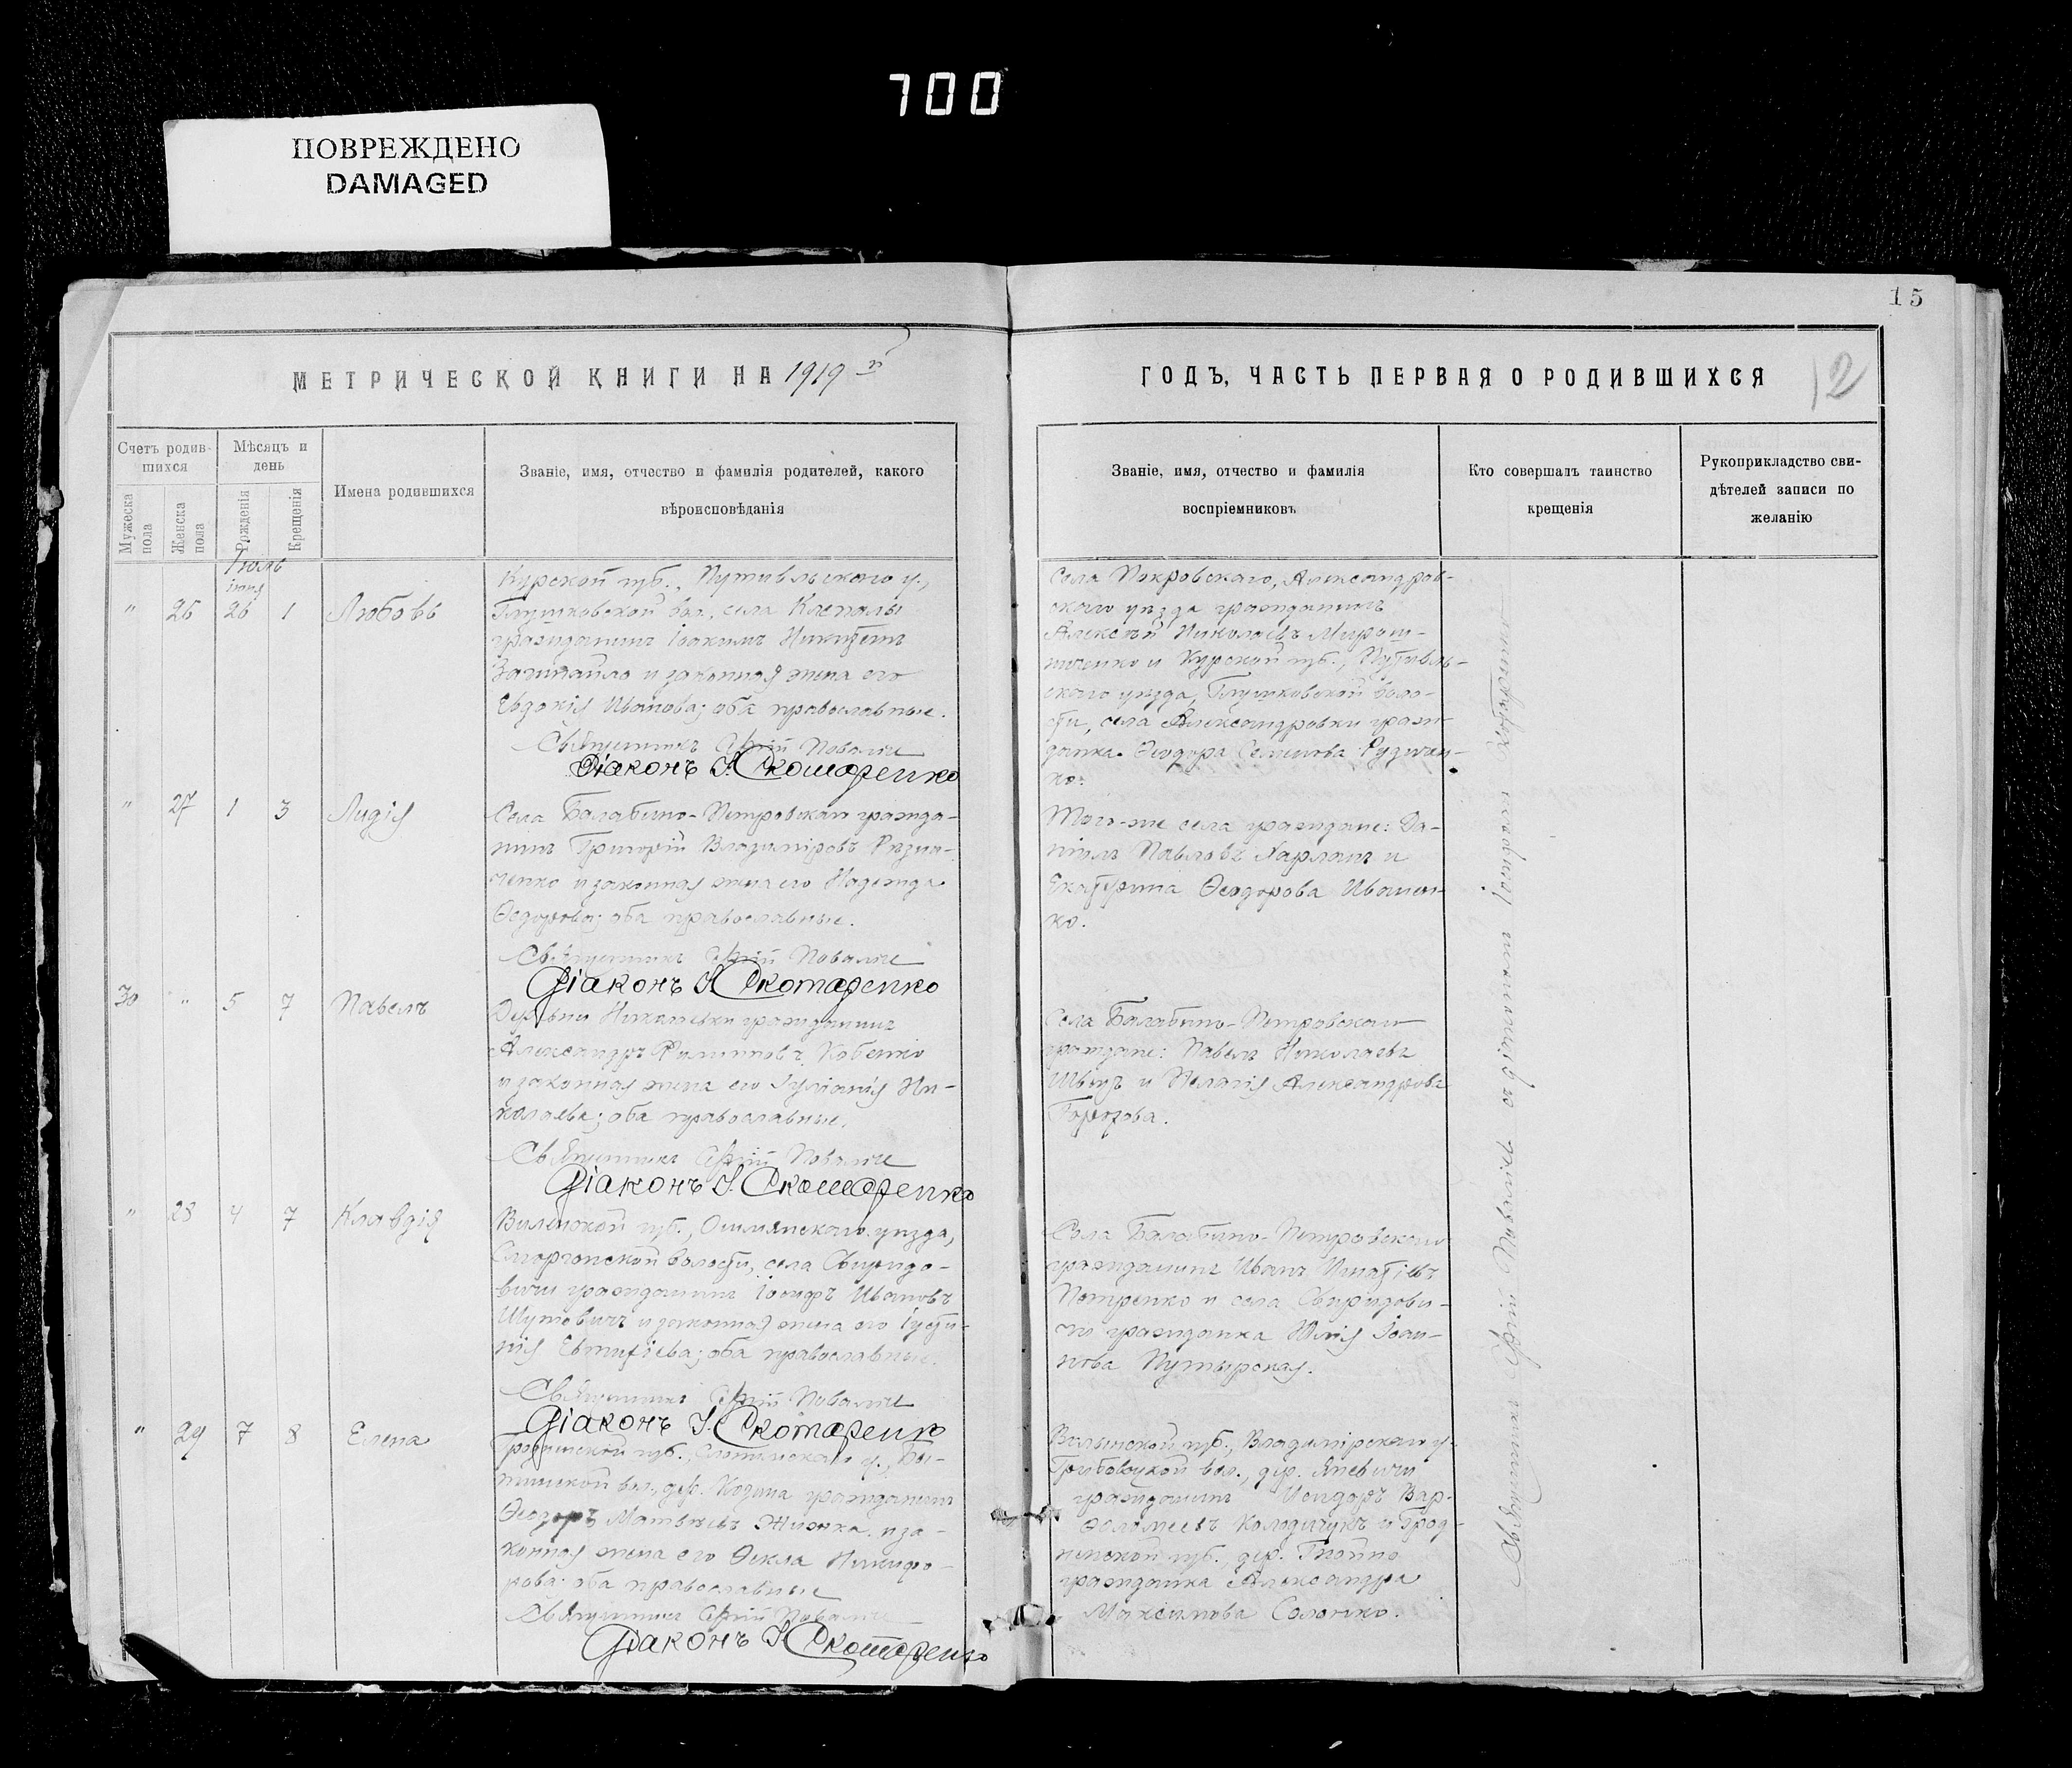 700
ПОВРЕЖДЕНО
DAMAGED
15
МЕТРИЧЕСКОЙ КНИГИ НА 1919
ГОДЪ, ЧАСТЬ ПЕРВАЯ О РОДИВШИХСЯ
12
Счетъ родив-
шихся
Мужеска пола
Женска пола
Мѣсяцъ и
день
Рожденія
Крещенія
Имена родившихся
Званіе, имя, отчество и фамилія родителей, какого
вѣроисповѣданія
Званіе, имя, отчество и фамилія
воспріемниковъ
Кто совершалъ таинство
крещенія
Рукоприкладство сви-
дѣтелей записи по
желанію
Іюль
іюня
" 26 26 1 Любовь
Курской губ., Путивльскаго у.,
Глушковской вол., села Клепалы
гражданинъ Іоакимъ Никитинъ
и законная жена его
Евдокія Иванова; оба православные.
Священникъ
Діаконъ І. Скотаренко
Села Покровскаго, Александров-
скаго уѣзда гражданинъ
Алексѣй Николаевъ Мирош-
ниченко и Курской губ., Путивль-
скаго уѣзда, Глушковской воло-
сти, села Александровки граж-
данка Ѳеодора Семенова
ко.
" 27 1 3 Лидія
Села Балабино-Петровскаго гражда-
нинъ Григорій Владиміровъ Рѣзни-
ченко и законная жена его Надежда
Ѳедорова; оба православные.
Священникъ
Діаконъ І. Скотаренко
Того-же села граждане: Да-
ніилъ Павловъ Харланъ и
Екатерина Ѳеодорова Иващен-
ко.
30 " 5 7 Павелъ
Деревни гражданинъ
Александръ Филипповъ Кобенко
и законная жена его Іуліанія Ни-
колаева; оба православные.
Священникъ
Діаконъ І. Скотаренко
Села Балабино-Петровскаго
граждане: Павелъ Николаевъ
Швецъ и Пелагія Александрова
" 28 4 7 Клавдія
Виленской губ., Ошмянскаго уѣзда,
Сморгонской волости, села Свиридо-
вичи гражданинъ Іосифъ Ивановъ
Шутовичъ и законная жена его Іусти-
нія Евтихіева; оба православные.
Священникъ
Діаконъ І. Скотаренко
Села Балабино-Петровскаго
гражданинъ Иванъ Игнатіевъ
Петренко и села Свиридови-
чи гражданка Юлія Іоан-
нова Путырская.
" 29 7 8 Елена
Гродненской губ., Слонимскаго у., Бы-
тенской вол., дер. Козина гражданинъ
Ѳеодоръ Матвѣевъ и за-
конная жена его Ѳекла Никифо-
рова; оба православные
Священникъ
Діаконъ І. Скотаренко
Волынской губ., Владимірскаго у.
Грибовицкой вол., дер. Яневичи
гражданинъ Исидоръ Вар-
ѳоломеевъ Колодичукъ и Грод-
ненской губ., дер. Гнойно
гражданка Александра
Максимова Солонко.
Священникъ